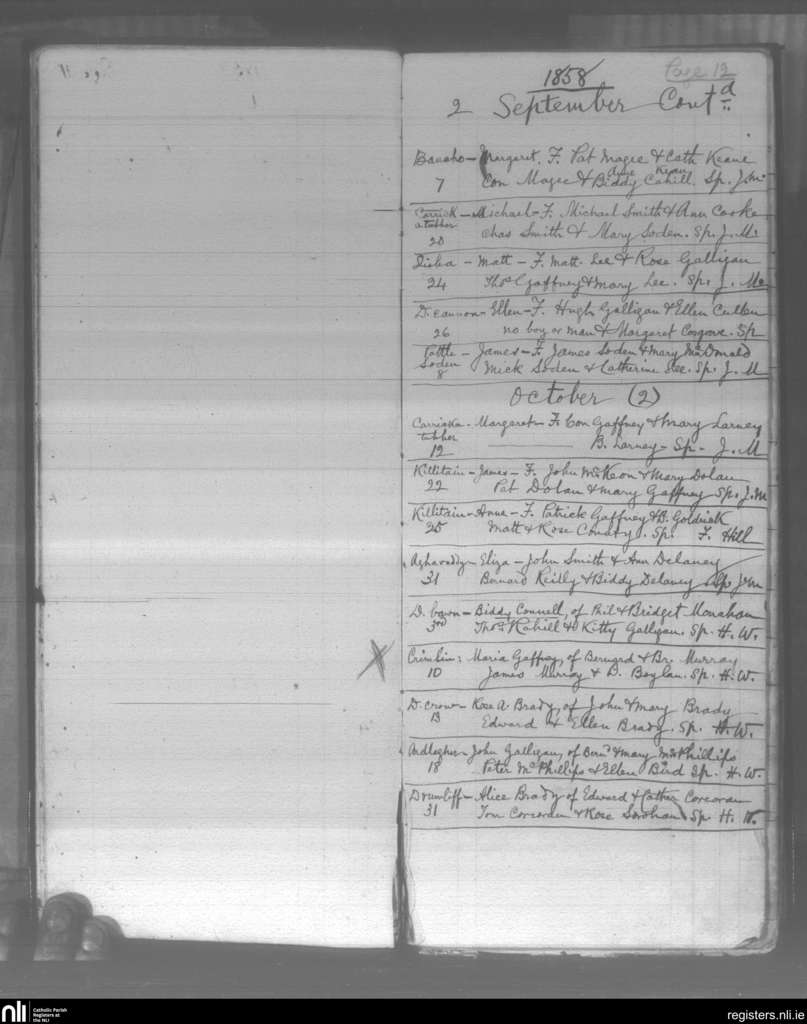 Page 12
1858
2 September Contd
Margaret. F. Pat Magee & Cath Keane
7 Con Magee & Biddy Cahill. Sp. J. Mc
Carrick - Michael - F. Michael Smith & Ann Cooke
a tubber Chas Smith & Mary Soden. Sp. J. Mc
20
Diska - Matt - F. Matt. Lee & Rose Galligan
24 Thos Gaffney & Mary Lee. Sp. J. Mc
D. cannon - Ellen - F. Hugh Galligan & Ellen Cullen
26 no boy or man & Margaret Cosgrove. Sp
Pottle - James - F. James Soden & Mary McDonald
Soden Mick Soden & Catherine Lee. Sp. J. M
8
October (2)
Carricka - Margaret - F. Con Gaffney & Mary Larney
tubber B. Larney - Sp - J. M
12
Killitain - James - F. John McKeon & Mary Dolan
22 Pat Dolan & Mary Gaffney Sp. J. M
Killitain - Anne - F. Patrick Gaffney & B. Goldrick
25 Matt & Rose Conaty. Sp. F. Hill
Aghavaddy - Eliza - John Smith & Ann Delaney
31 Bernard Reilly & Biddy Delaney Sp J. M
D. bawn - Biddy Connell, of Phil & Bridget Monahan
3rd Thos Kahill & Kitty Galligan. Sp. H. W.
Crimlin: Maria Gaffney, of Bernard & Br. Murray
10 James Murray & D. Boylan. Sp. H. W.
D. crow - Rose A Brady, of John & Mary Brady
13 Edward & Ellen Brady. Sp. H. W.
Ardlogher - John Galligan, of Bernd & Mary McPhillips
18 Peter McPhillips & Ellen Bird Sp. H. W.
Drumliff - Alice Brady of Edward & Cather Corcoran
31 Tom Corcoran & Rose Sorohan Sp H. W.
nli
Catholic Parish
Registers at
the NLI
registers.nli.ie